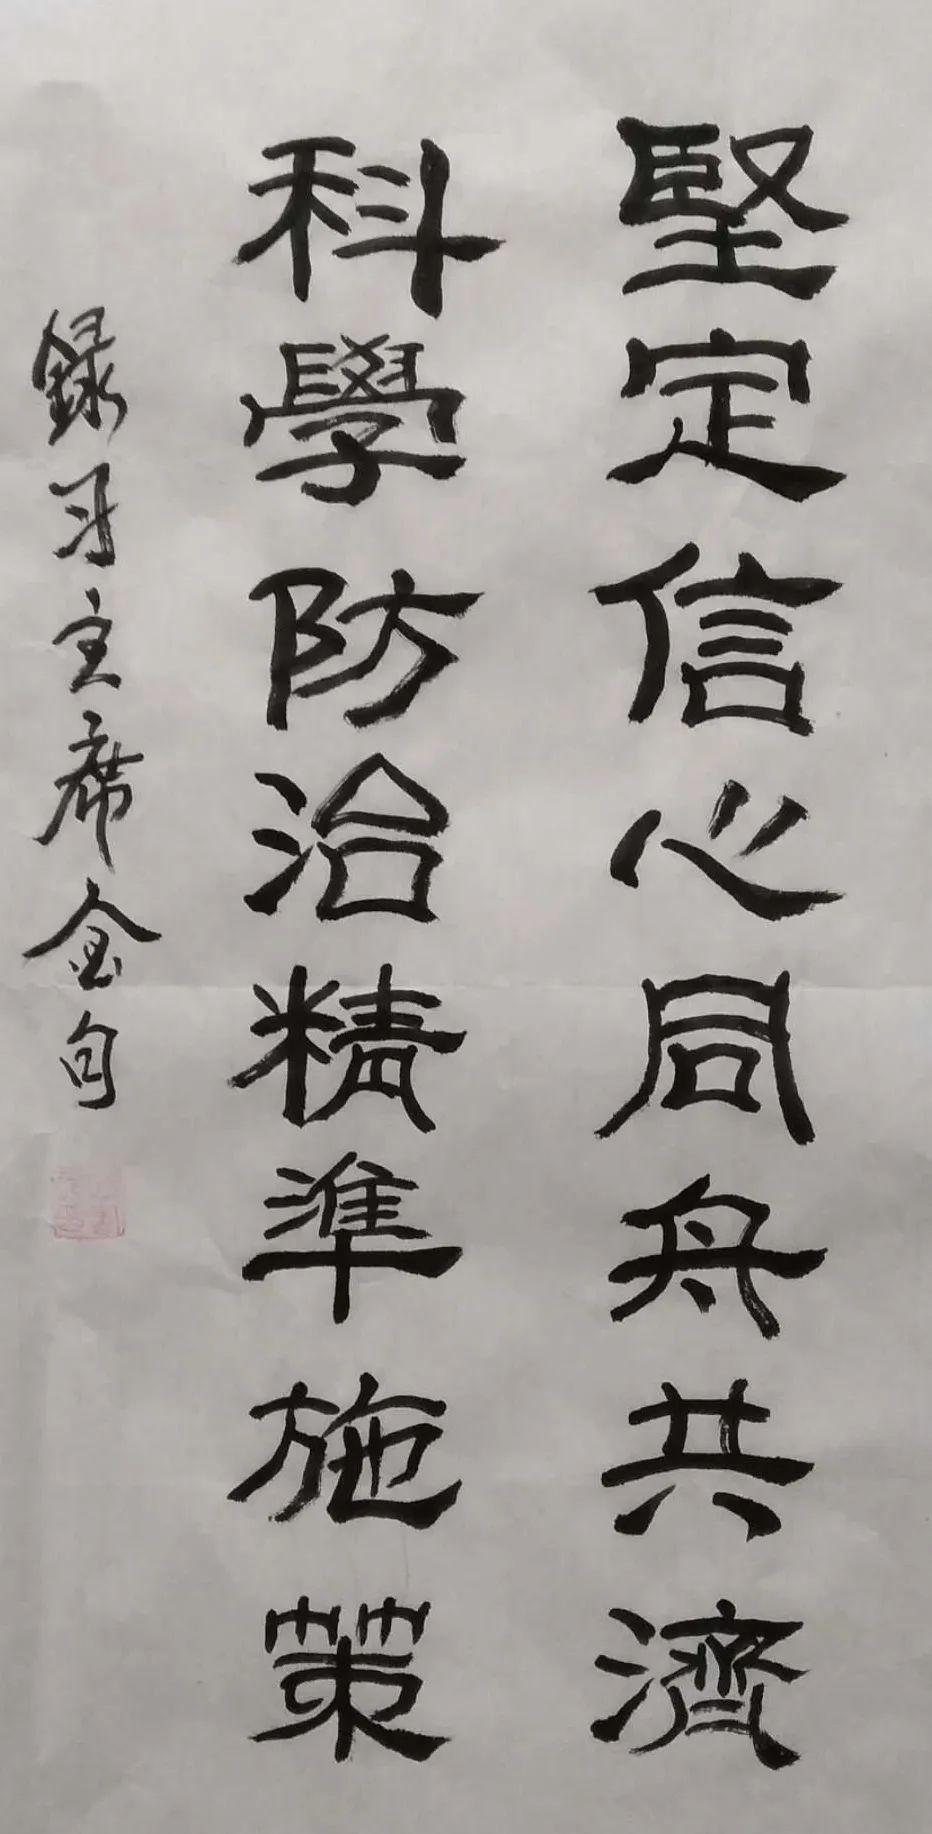 堅定信心同舟共濟
科學防治精準施策
録习主席金句